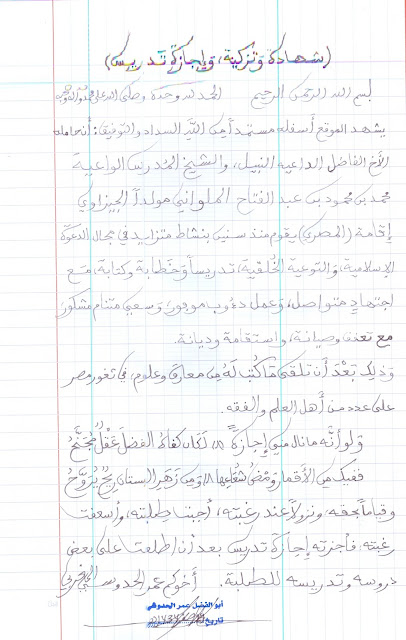 (شهادة وتزكية، وإجازة تدريس)
بسم الله الرحمن الرحيم الحمد لله وحده وصلى الله على محمد وآله وصحبه
يشهد الموقع أسفله مستمدا من الله السداد والتوفيق: أن حامله
الأخ الفاضل الداعية النبيل، والشيخ المدرس الواعية
محمد بن محمود بن عبد الفتاح الملواني مولدا الجيزاوي
إقامة (المصري) يقوم منذ سنين بنشاط متزايد في مجال الدعوة
الإسلامية، والتوعية الخلقية، تدريسا وخطابة وكتابة، مع
اجتهاد متواصل، وعمل دءوب موفور، وسعي متنام مشكور
مع تعفف وصيانة، واستقامة وديانة.
وذلك بعد أن تلقى ما كتب له من معارف وعلوم، في ثغور مصر
على عدد من أهل العلم والفقه.
ولو أنه ما نال مني إجازة لكان كفاء الفضل عقل مجنح
ففيك من الأقمار ومض شعاعها ومن زهر البستان ريح يروح
وقياما بحقه، ونزولا عند رغبته، أجبت طلبته، وأسعفت
رغبته، فأجزته إجازة تدريس بعد أن اطلعت على بعض
دروسه وتدريسه للطلبة. أخوكم عمر الحدوشي
أبو الفضل عمر الحدوشي
تاريخ